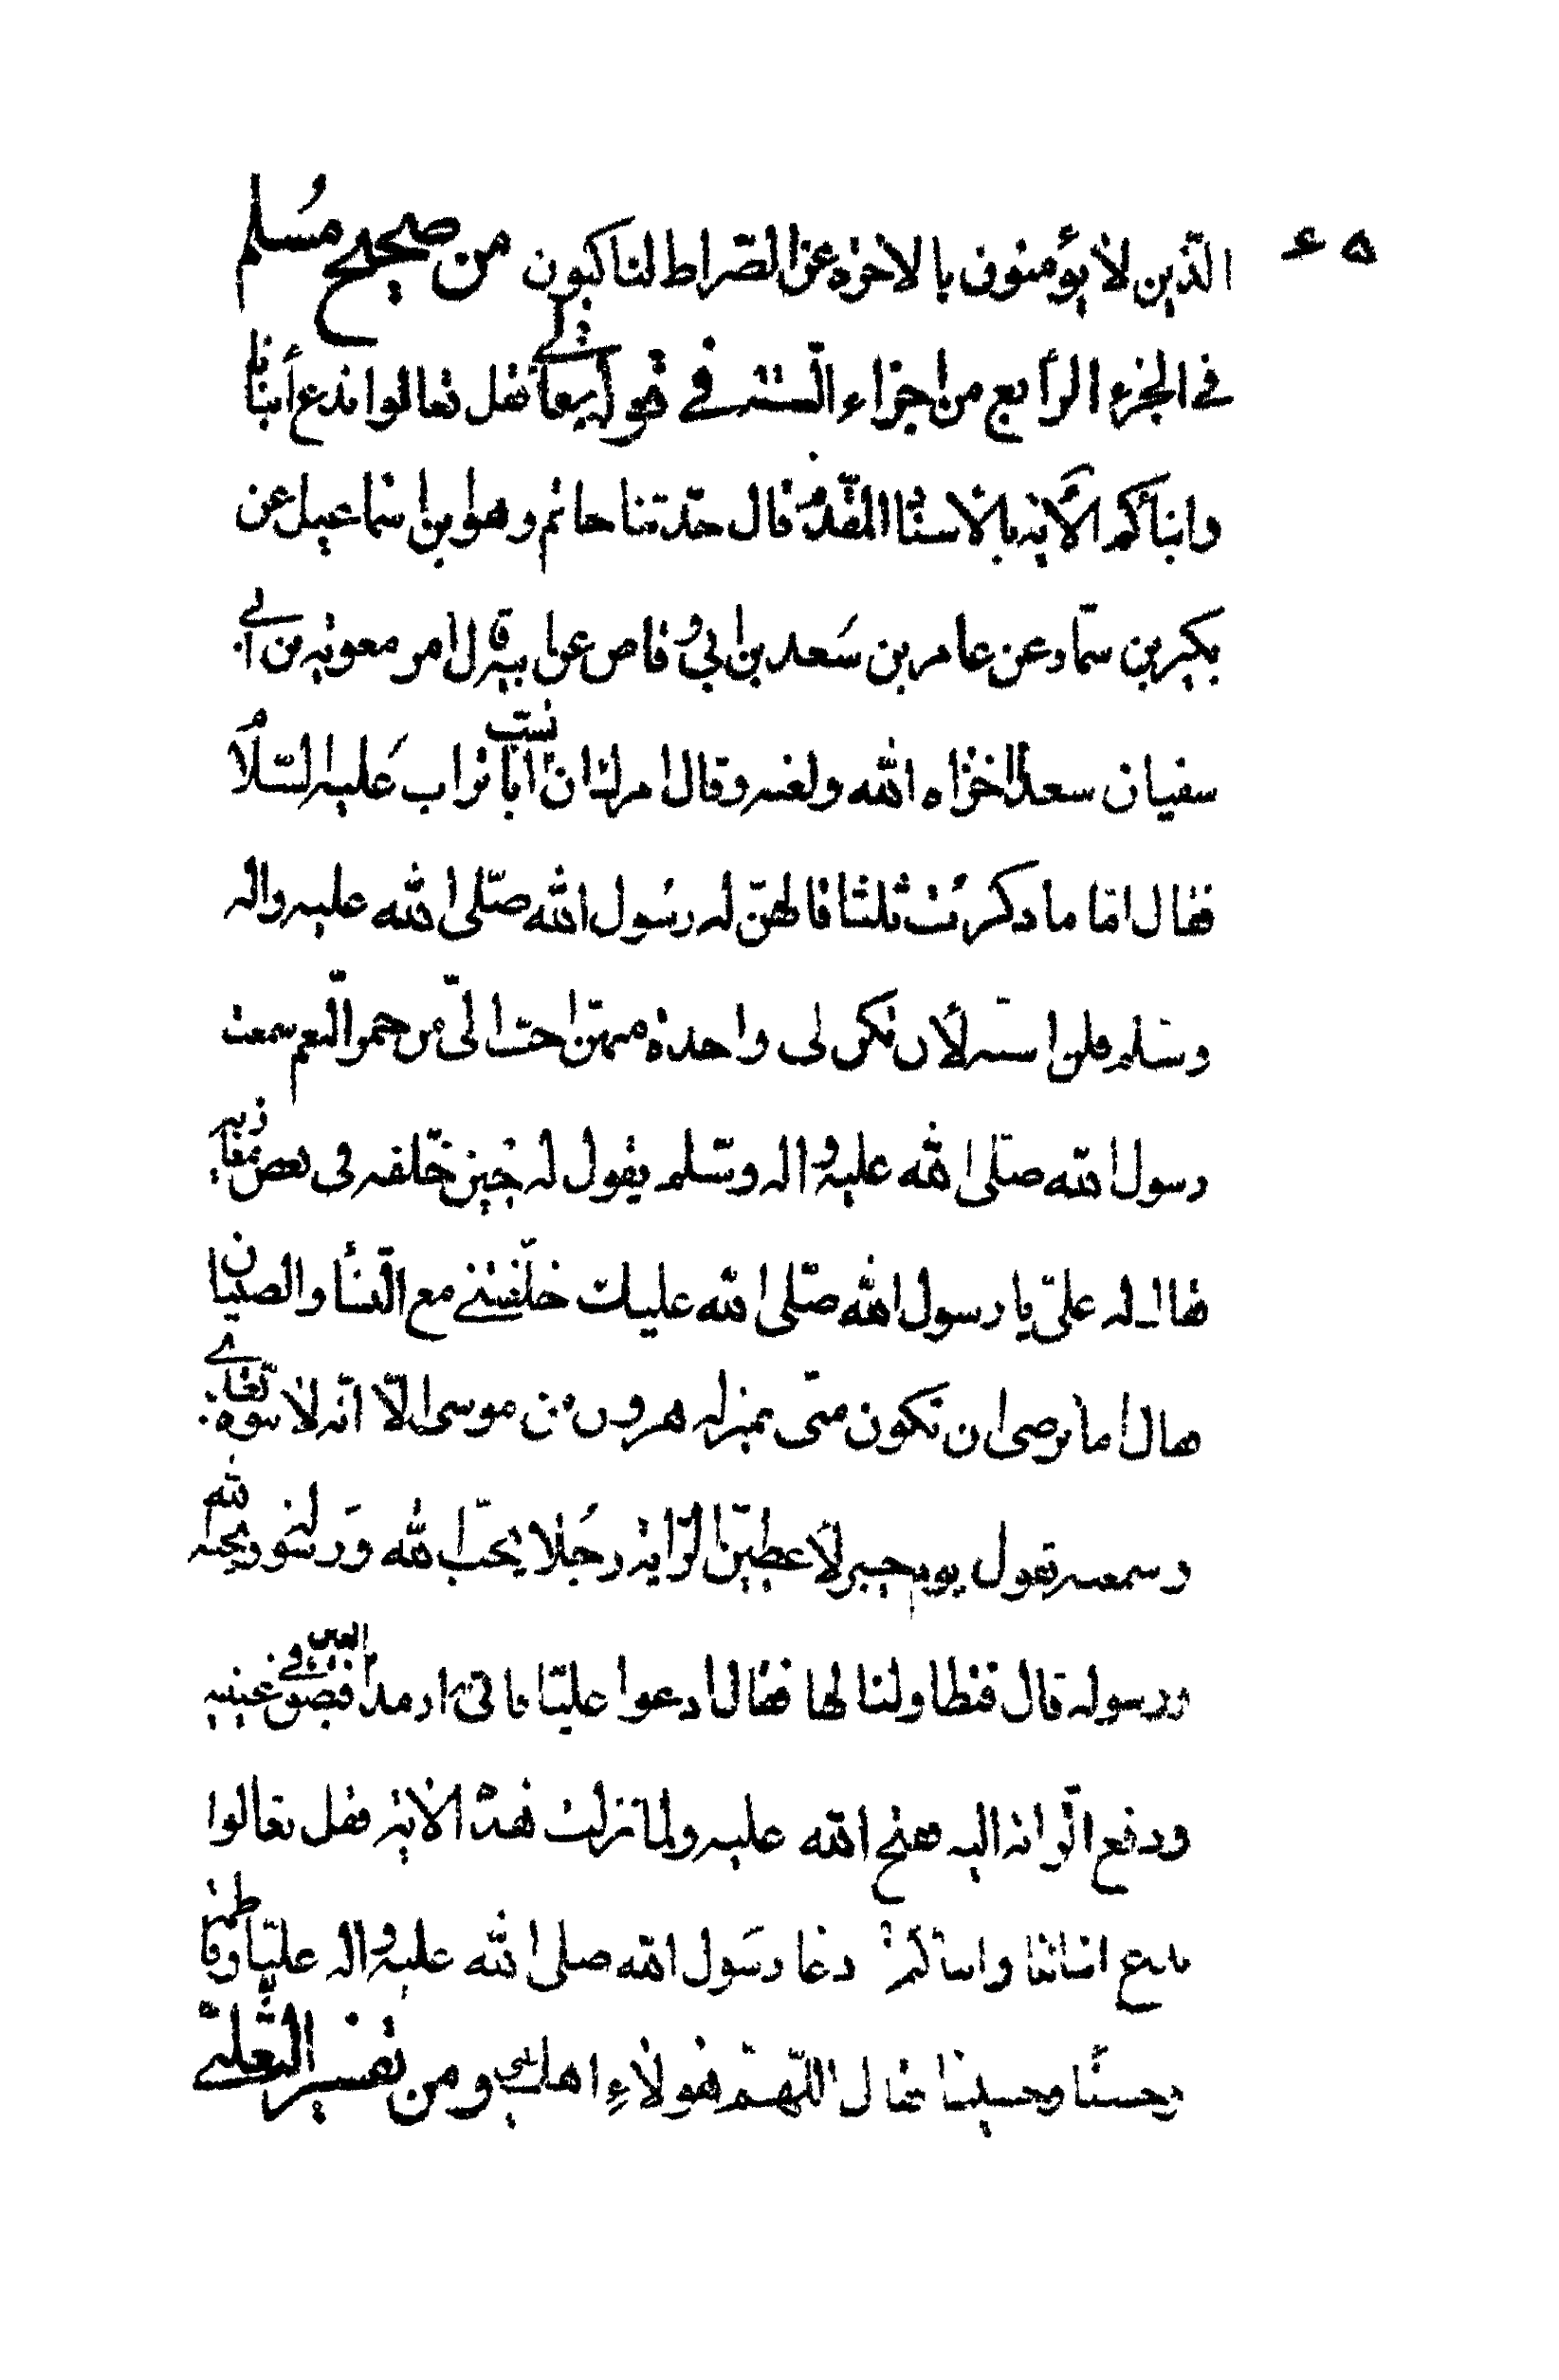 ٥٤
الذين لا يؤمنون بالاخرة عن الصراط لناكبون من صحيح مسلم
في الجزء الرابع من اجزاء الستة في قوله تعالى فقل تعالوا ندع أبنائنا
وابنائكم الآية بالاسناد المقدم قال حدثنا حاتم وهو ابن اسماعيل عن
بكير بن سمار عن عامر بن سعد بن ابي وقاص عن ابيه قال امر معوية بن ابي
سفيان سعدا اخزاه الله ولعنه وقال امرك ان تسب ابا تراب عليه السلام
فقال اما ما ذكرت ثلثا قالهن له رسول الله صلى الله عليه واله
وسلم فلن اسبه لأن تكن لي واحدة منهن احب الي من حمر النعم سمعت
رسول الله صلى الله عليه واله وسلم يقول له حين خلفه في بعض مغازيه
فقال له علي يا رسول الله صلى الله عليك خلفتني مع النساء والصبيان
فقال اما ترضى ان تكون مني بمنزلة هرون من موسى الا انه لا نبوة بعدي
وسمعته يقول يوم خيبر لأعطين الراية رجلا يحب الله ورسوله ويحبه الله
ورسوله قال فتطاولنا لها فقال ادعوا عليا فاتي به ارمد العين فبصق في عينيه
ودفع الراية اليه ففتح الله عليه ولما نزلت هذه الاية فقل تعالوا
ندع ابنائنا وابنائكم دعا رسول الله صلى الله عليه واله عليا وفاطمة
وحسنا وحسينا فقال اللهم هولاء اهل بيتي ومن تفسير الثعلبي